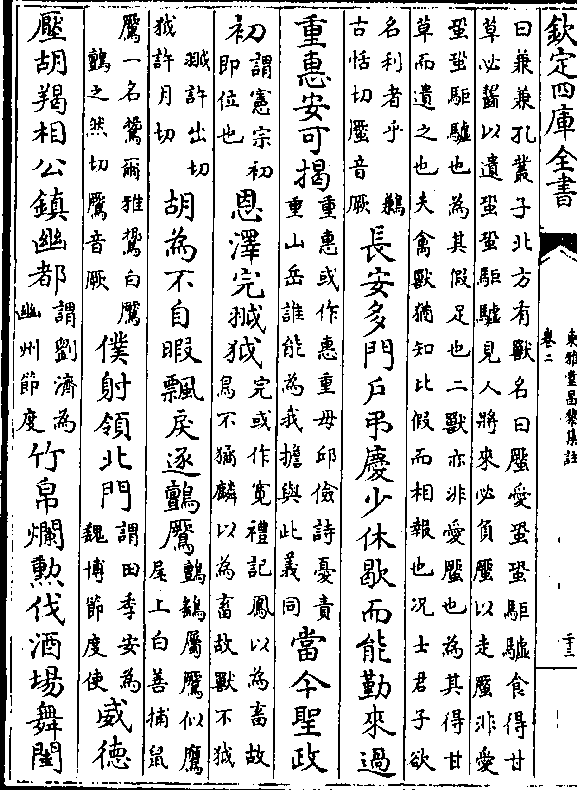 欽定四庫全書
東雅堂昌黎集註
卷二
二十二
曰兼兼孔叢子北方有獸名曰蟨愛蛩蛩駏驉食得甘
草必齧以遺蛩蛩駏驉見人將來必負蟨以走蟨非愛
蛩蛩駏驉也為其假足也二獸亦非愛蟨也為其得甘
草而遺之也夫禽獸猶知比假而相報也况士君子欲
名利者乎 鶼
古恬切蟨音厥
長安多門戶弔慶少休歇而能勤來過
重惠安可揭
重惠或作惠重毋邱儉詩憂責
重山岳誰能為我擔與此義同
當今聖政
初
謂憲宗初
即位也
恩澤完狘
完或作寛禮記鳳以為畜故
鳥不獝麟以為畜故獸不狘
許出切
狘許月切
胡為不自暇飄戾逐鸇鷢
鸇鷂屬鷢似鷹
尾上白善捕鼠
鷢一名鸉爾雅鸉白鷢
鸇之然切鷢音厥
僕射領北門
謂田季安為
魏博節度使
威德
壓胡羯相公鎮幽都
謂劉濟為
幽州節度
竹帛爛勲伐酒場舞閨